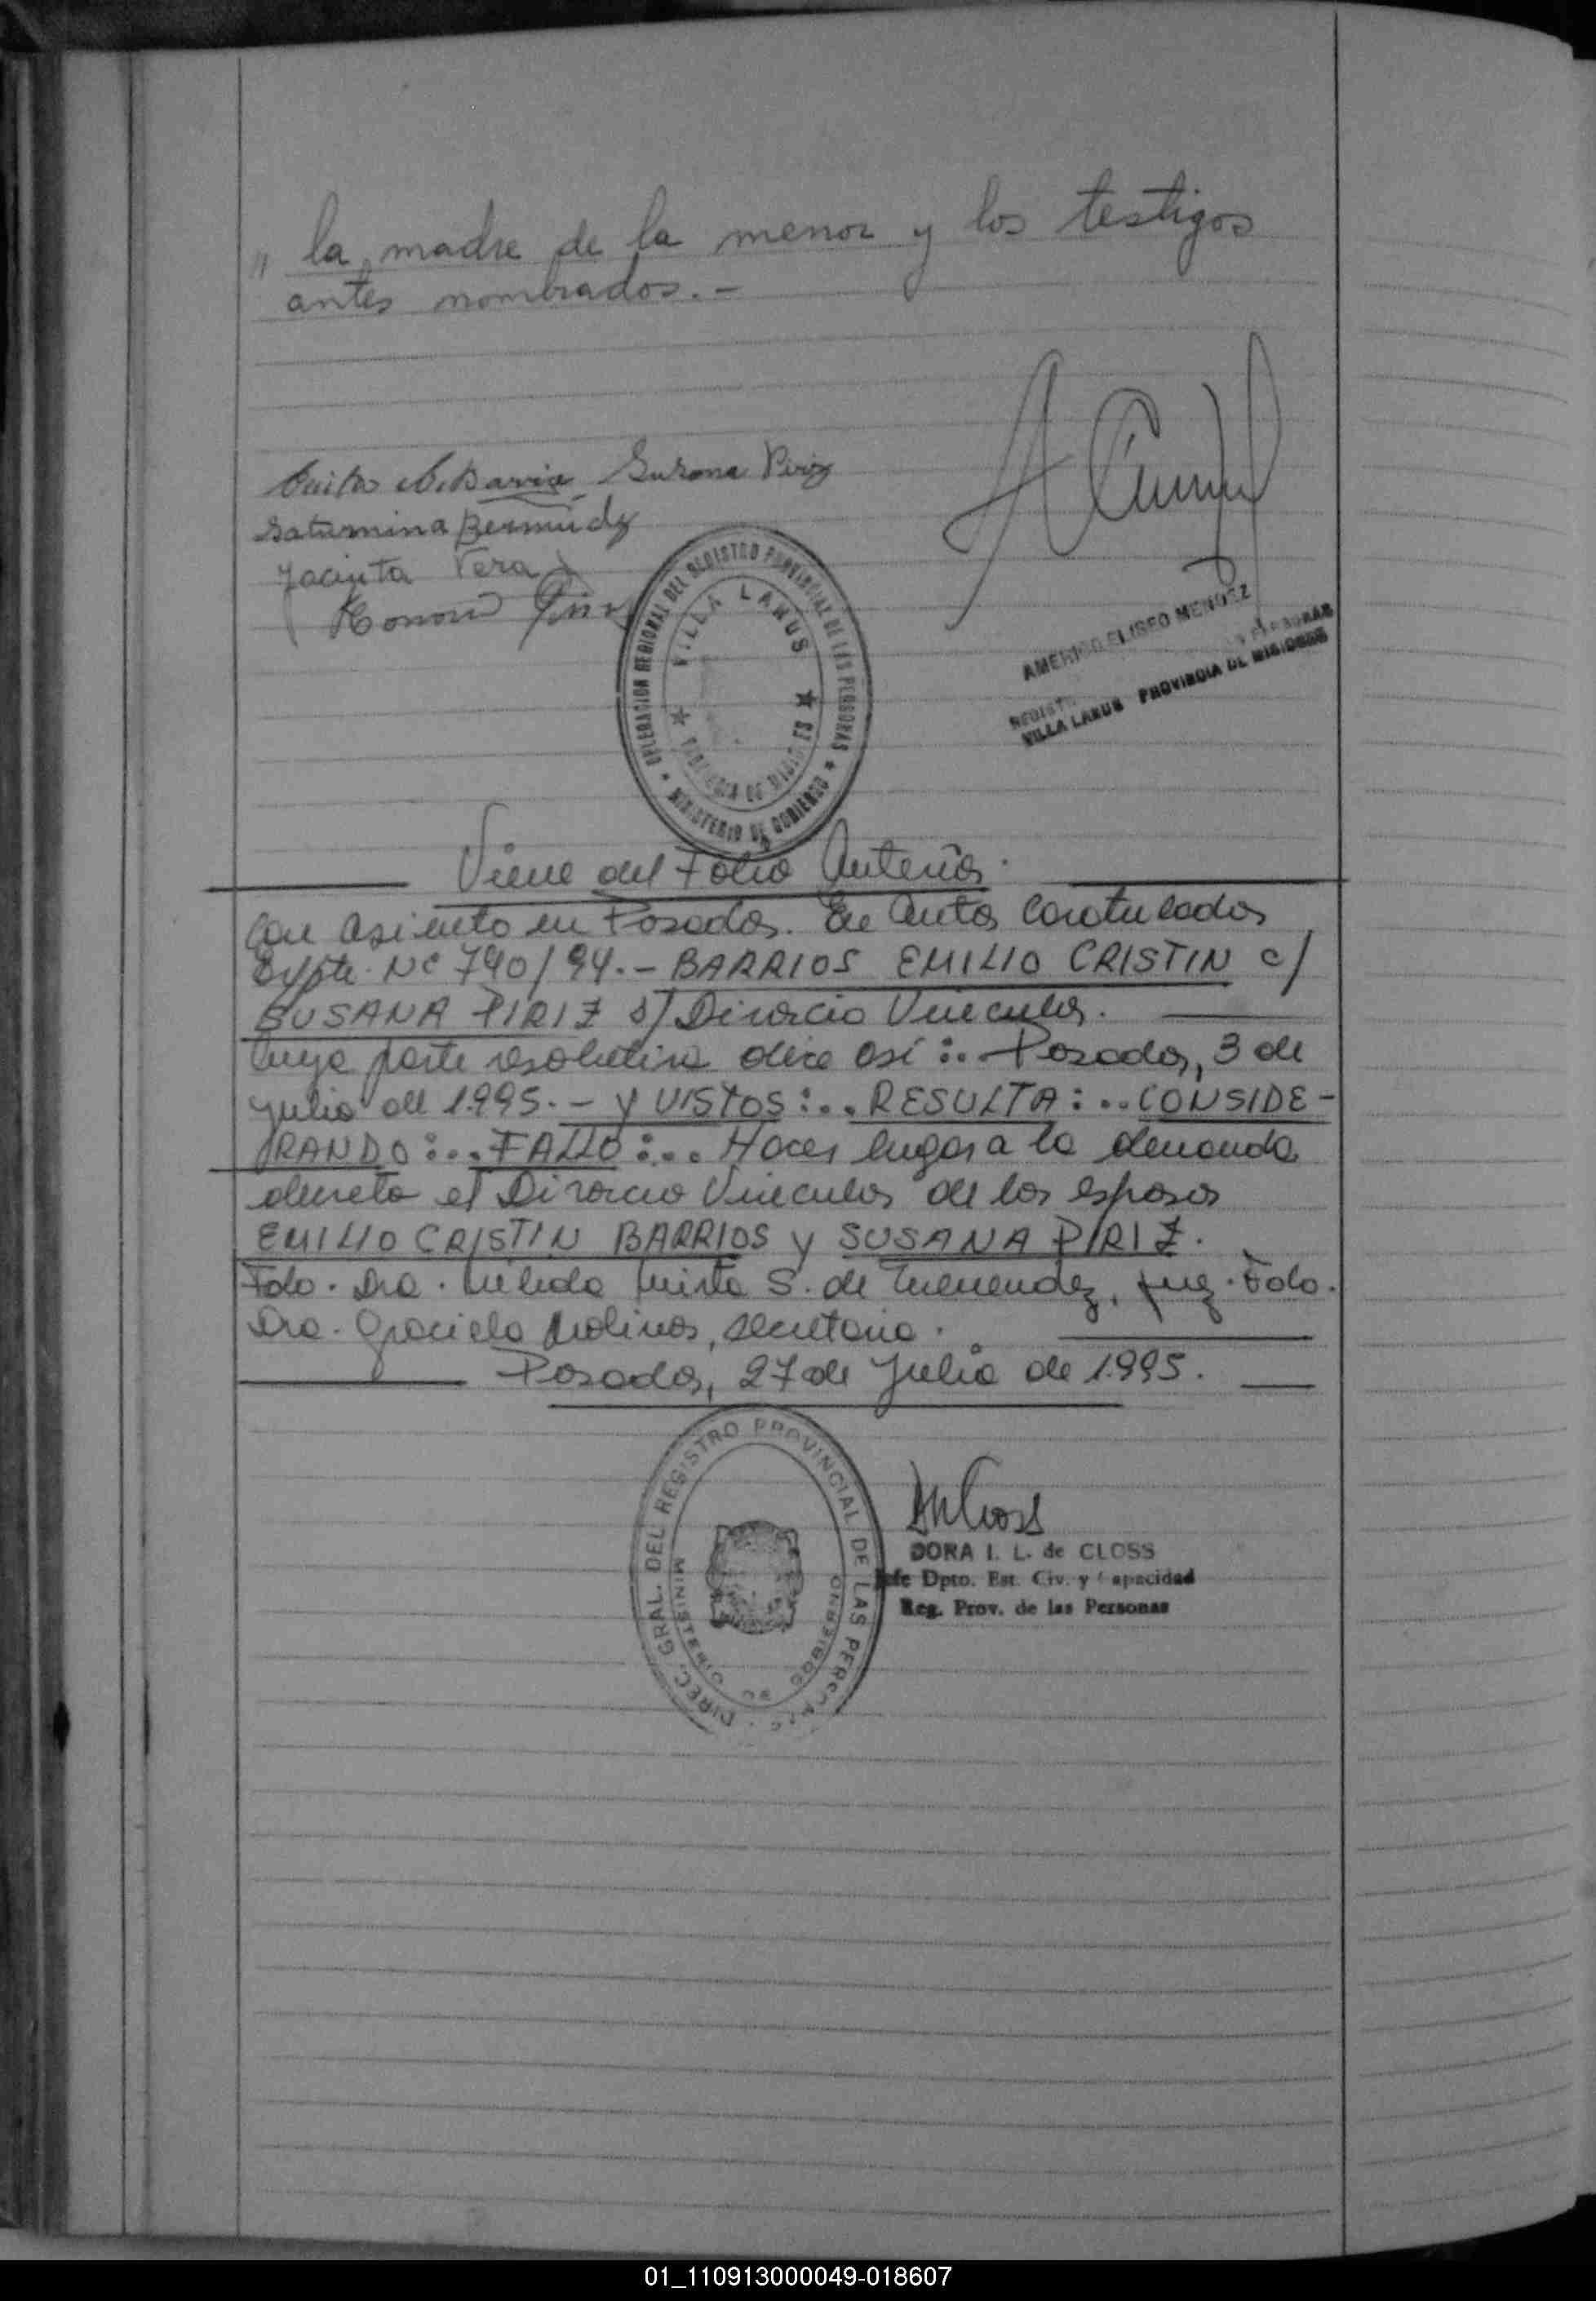 " la madre de la menor y los testigos
antes nombrados.-
Susana Piriz
Saturnina Bermudz
Jacinta Vera
DELEGACION REGIONAL DEL REGISTRO PROVINCIAL DE LAS PERSONAS
★ MINISTERIO DE GOBIERNO ★
VILLA LANUS
★ PROVINCIA DE MISIONES ★
AMERICO ELISEO MENDEZ
VILLA LANUS PROVINCIA DE MISIONES
Viene del Folio Anterior.
Con asiento en Posadas. En Autos Caratulados
Expte. Nº 790/94.- BARRIOS EMILIO CRISTIN c/
SUSANA PIRIZ s/ Divorcio Vincular.
Cuya parte resolutiva dice así:.. Posadas, 3 de
julio de 1.995.- Y VISTOS:.. RESULTA:.. CONSIDE-
RANDO:... FALLO:... Hacer lugar a la demanda
decreto el Divorcio Vincular de los esposos
EMILIO CRISTIN BARRIOS Y SUSANA PIRIZ.
Fdo. Dra. S. de Menendez, Juez. Fdo.
Dra. Graciela Molinas, secretaria.
Posadas, 27 de Julio de 1.995.
DIREC. GRAL. DEL REGISTRO PROVINCIAL DE LAS PERSONAS
MINISTERIO DE GOBIERNO
DORA I. L. de CLOSS
Jefe Dpto. Est. Civ. y Capacidad
Reg. Prov. de las Personas
01_110913000049-018607